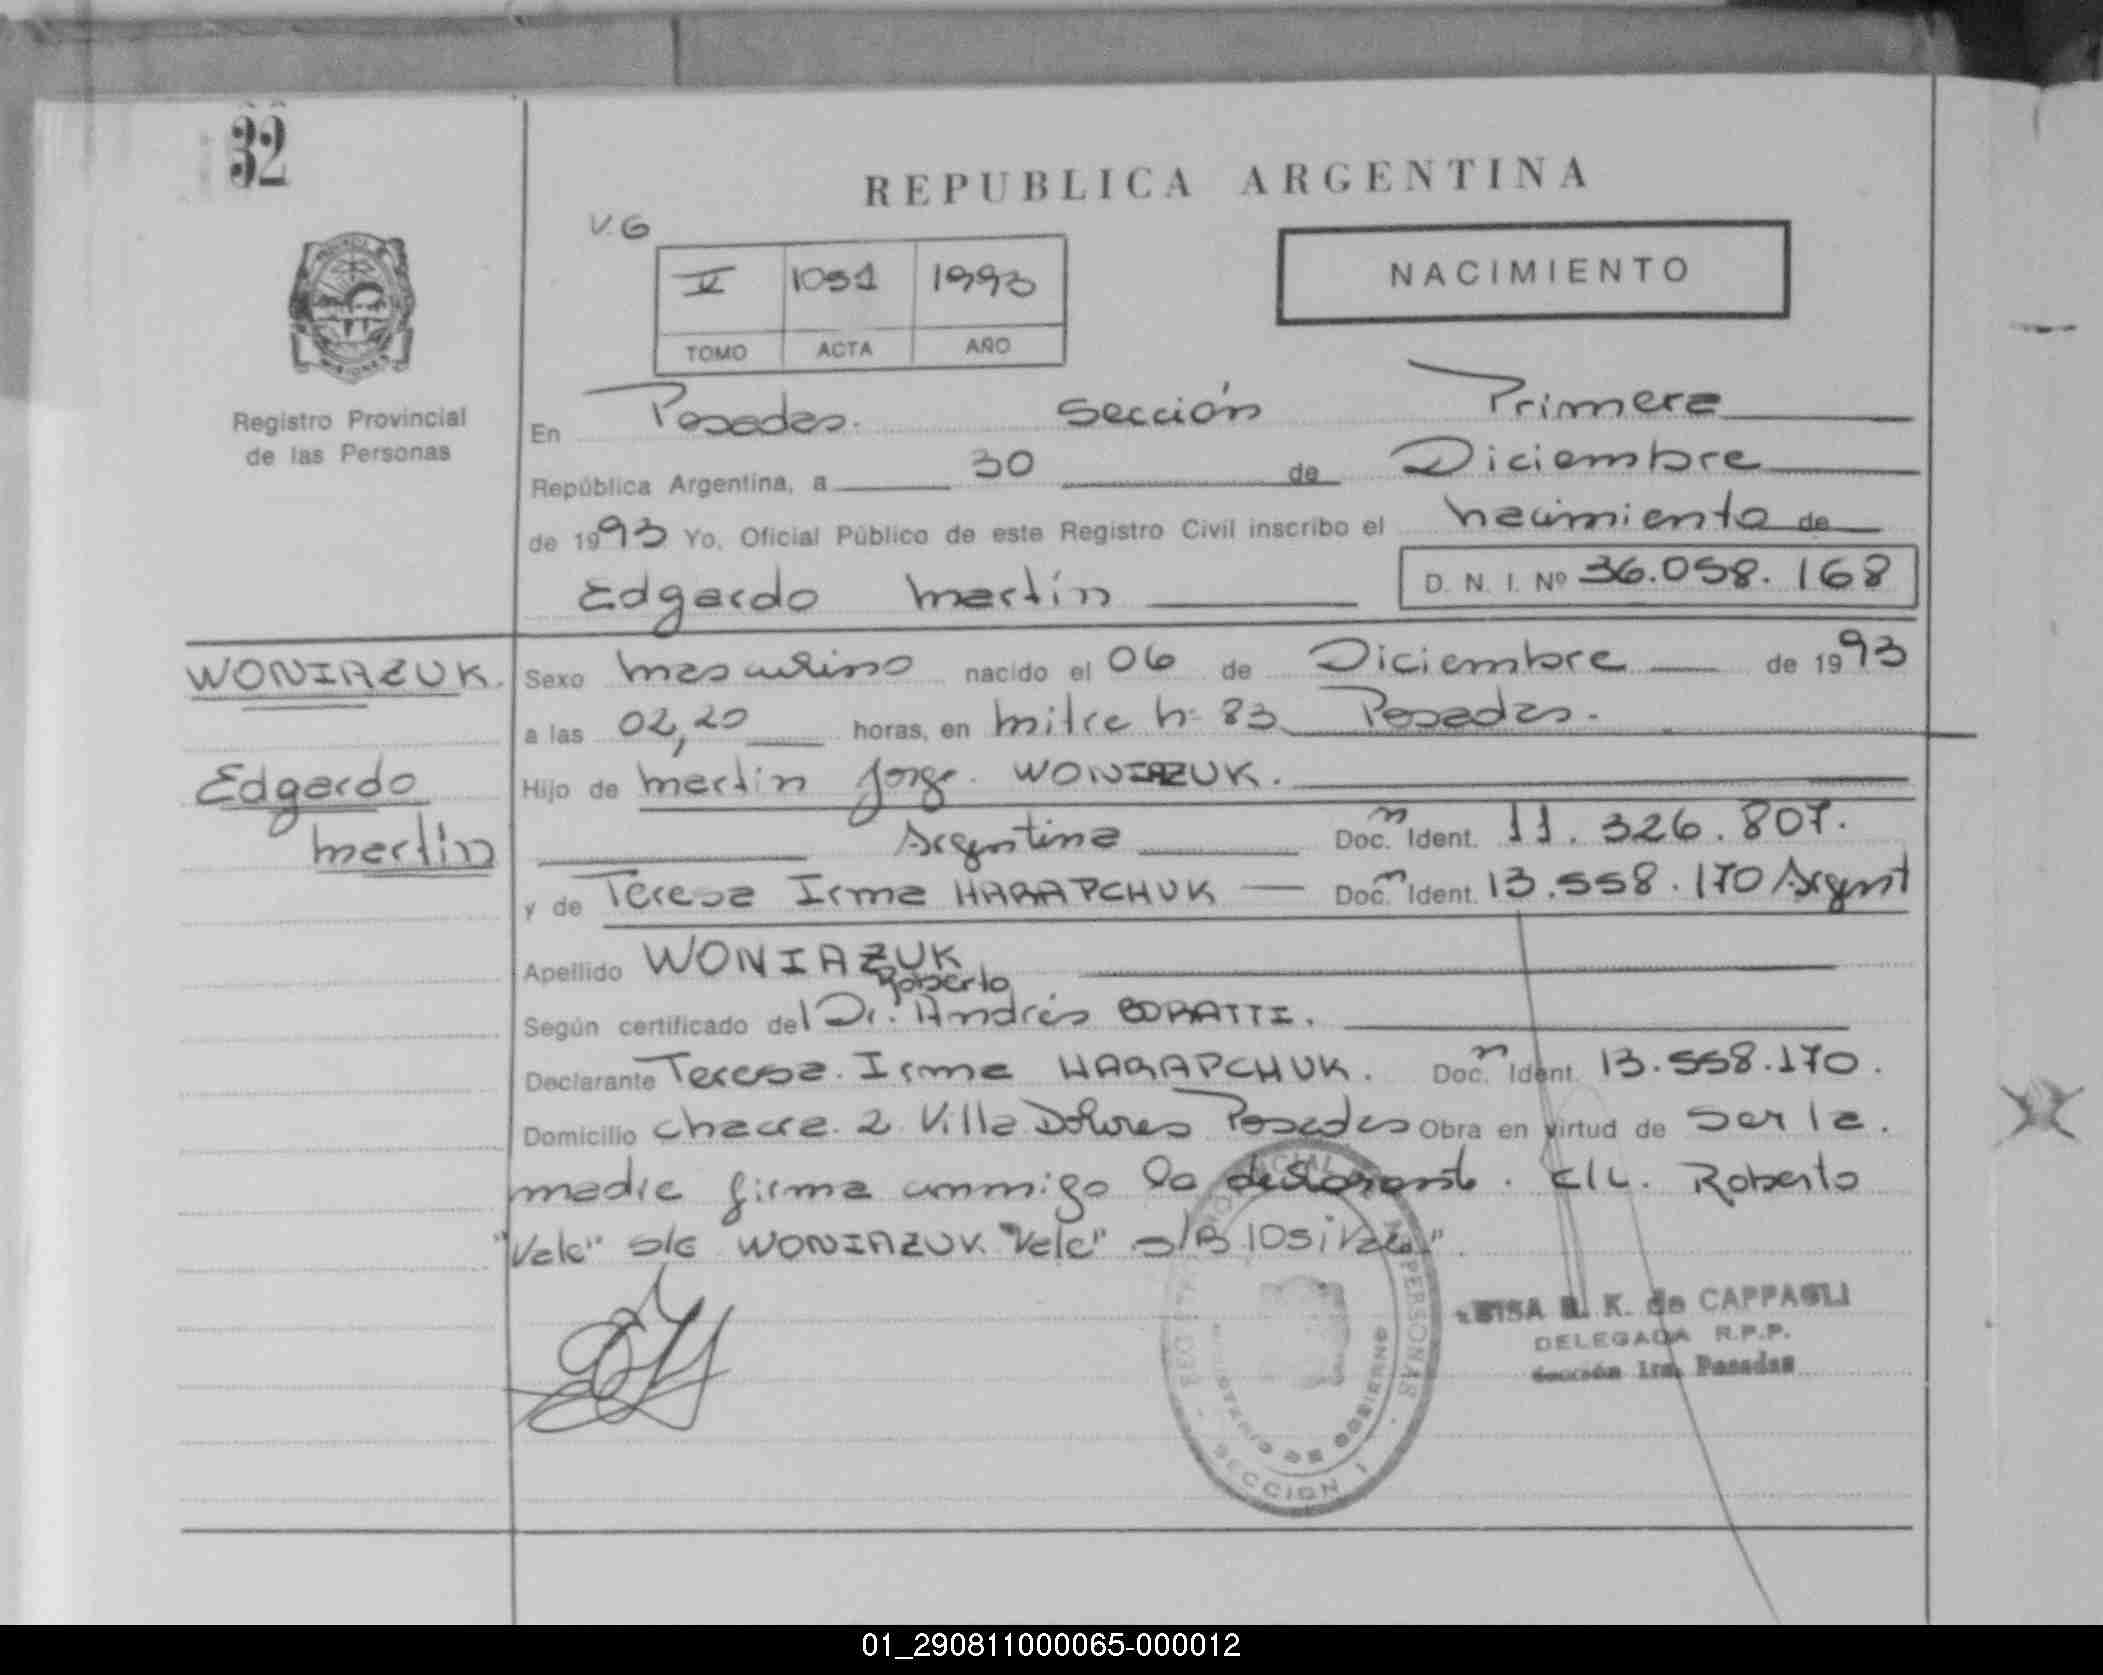 32
REPUBLICA ARGENTINA
V.G
V 1051 1993
TOMO ACTA AÑO
NACIMIENTO
Registro Provincial
de las Personas
En Posadas. Sección Primera
República Argentina, a 30 de Diciembre
de 1993 Yo, Oficial Público de este Registro Civil inscribo el nacimiento de
Edgardo Martín D. N. I. Nº 36.058.168
WONIAZUK.
Edgardo
Martín
Sexo Masculino nacido el 06 de Diciembre de 1993
a las 02,20 horas, en Mitre Nº 83 Posadas.
Hijo de Martín Jorge WONIAZUK.
Argentina Doc. m Ident. 11.326.807.
y de Teresa Irma HARAPCHUK Doc. m Ident. 13.558.170 Argent
Apellido WONIAZUK
Roberto
Según certificado del Dr. Andrés BORATTI.
Declarante Teresa Irma HARAPCHUK. Doc. m Ident. 13.558.170.
Domicilio Chacra 2 Villa Dolores Posadas Obra en virtud de Ser la
madre firma conmigo la declarante. E/L. Roberto
"Vale" S/E WONIAZUK "Vale" S/B
REGISTRO PROVINCIAL PERSONAS
MINISTERIO DE GOBIERNO
SECCION 1
K. de CAPPAGLI
DELEGADA R.P.P.
Sección 1ra. Posadas
01_290811000065-000012